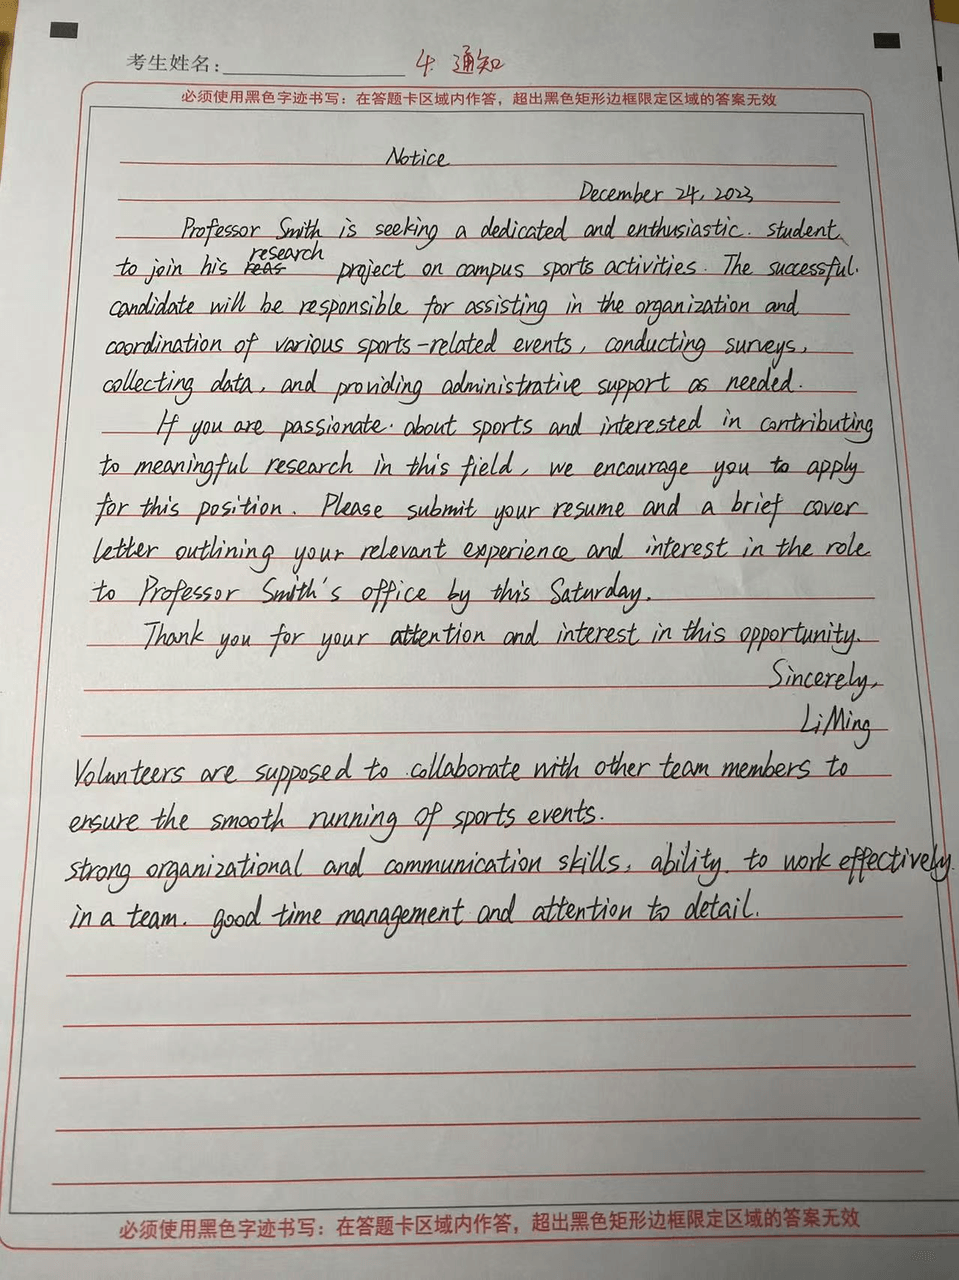 考生姓名：
4. 通知
必须使用黑色字迹书写：在答题卡区域内作答，超出黑色矩形边框限定区域的答案无效
Notice
December 24, 2023
Professor Smith is seeking a dedicated and enthusiastic. student
research
to join his reas project on campus sports activities. The successful.
candidate will be responsible for assisting in the organization and
coordination of various sports-related events, conducting surveys,
collecting data, and providing administrative support as needed.
If you are passionate. about sports and interested in contributing
to meaningful research in this field, we encourage you to apply
for this position. Please submit your resume and a brief cover
letter outlining your relevant experience and interest in the role
to Professor Smith's office by this Saturday.
Thank you for your attention and interest in this opportunity.
Sincerely,
Li Ming
Volunteers are supposed to collaborate with other team members to
ensure the smooth running of sports events.
strong organizational and communication skills, ability. to work effectively
in a team. good time management and attention to detail.
必须使用黑色字迹书写：在答题卡区域内作答，超出黑色矩形边框限定区域的答案无效